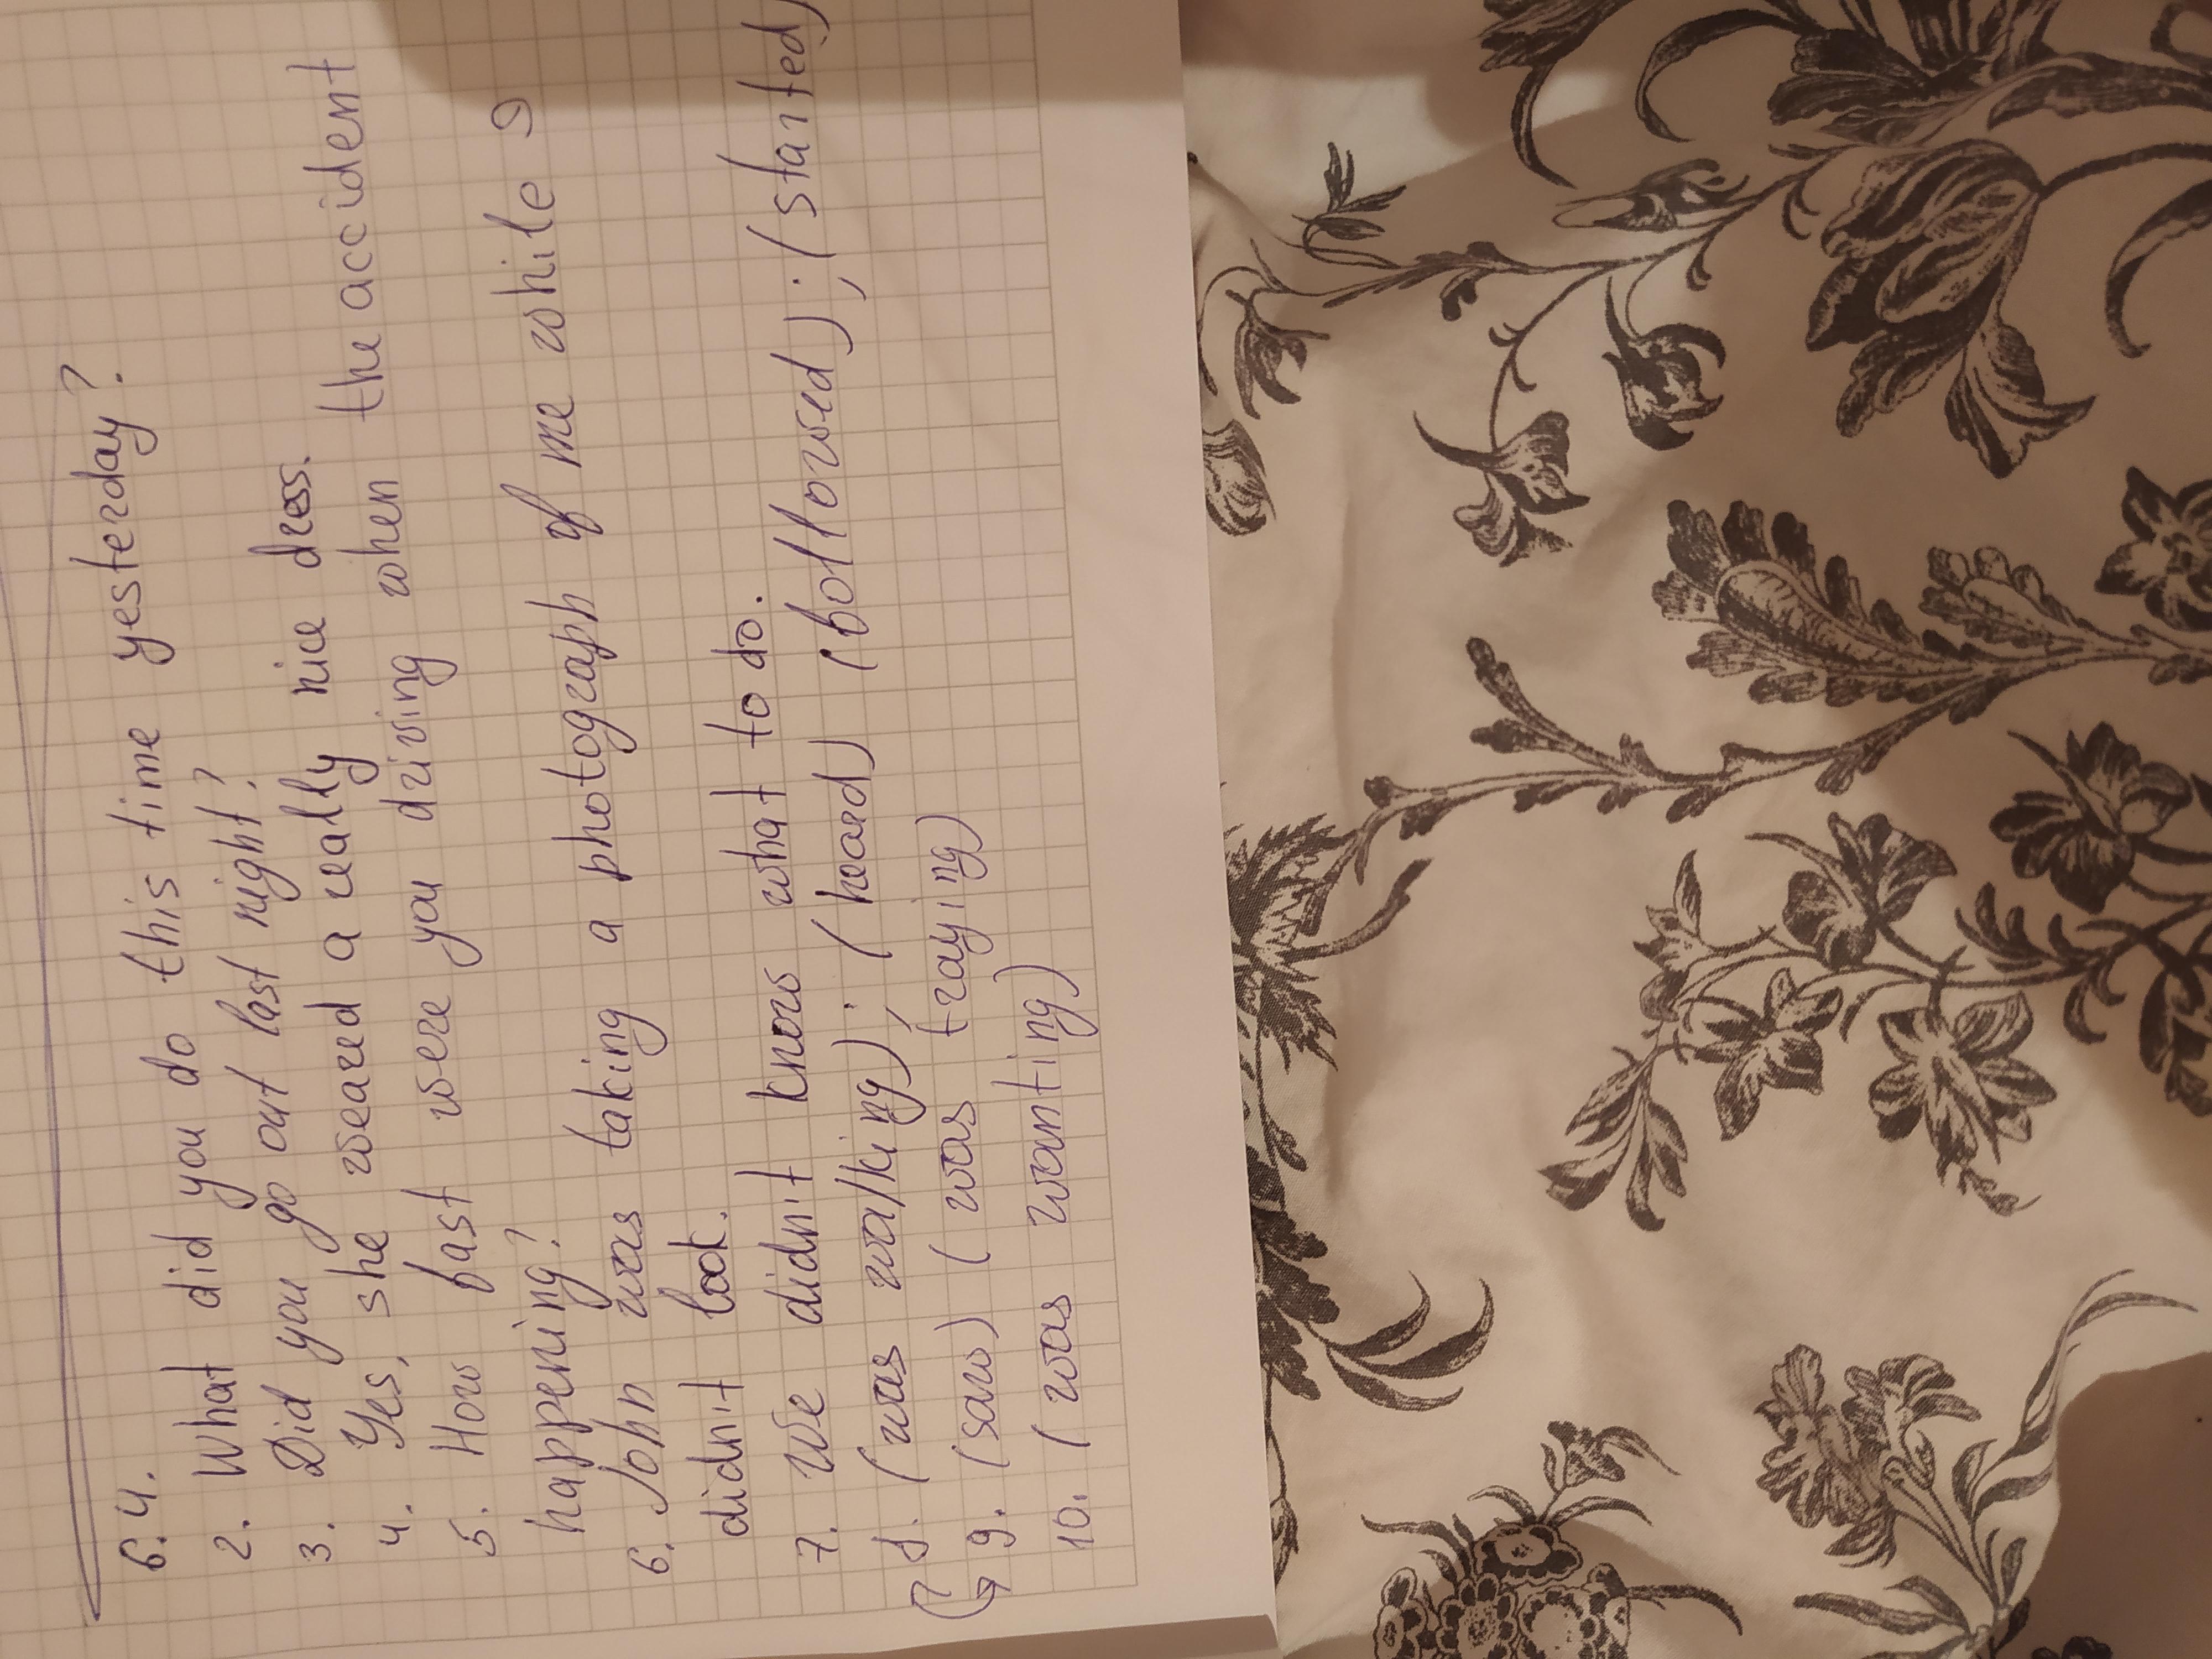 6.4.
2. What did you do this time yesterday?
3. Did you go out last night?
4. Yes, she weared a really nice dress.
5. How fast were you driving when the accident
happening?
6. John was taking a photograph of me while I
didn't look.
7. We didn't know what to do.
8. (was walking); (heard) (followed); (started)
9. (saw) (was traying)
10. (was wanting)